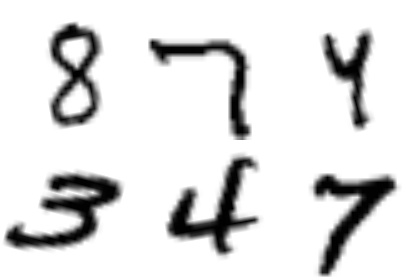 8 7 4
3 4 7